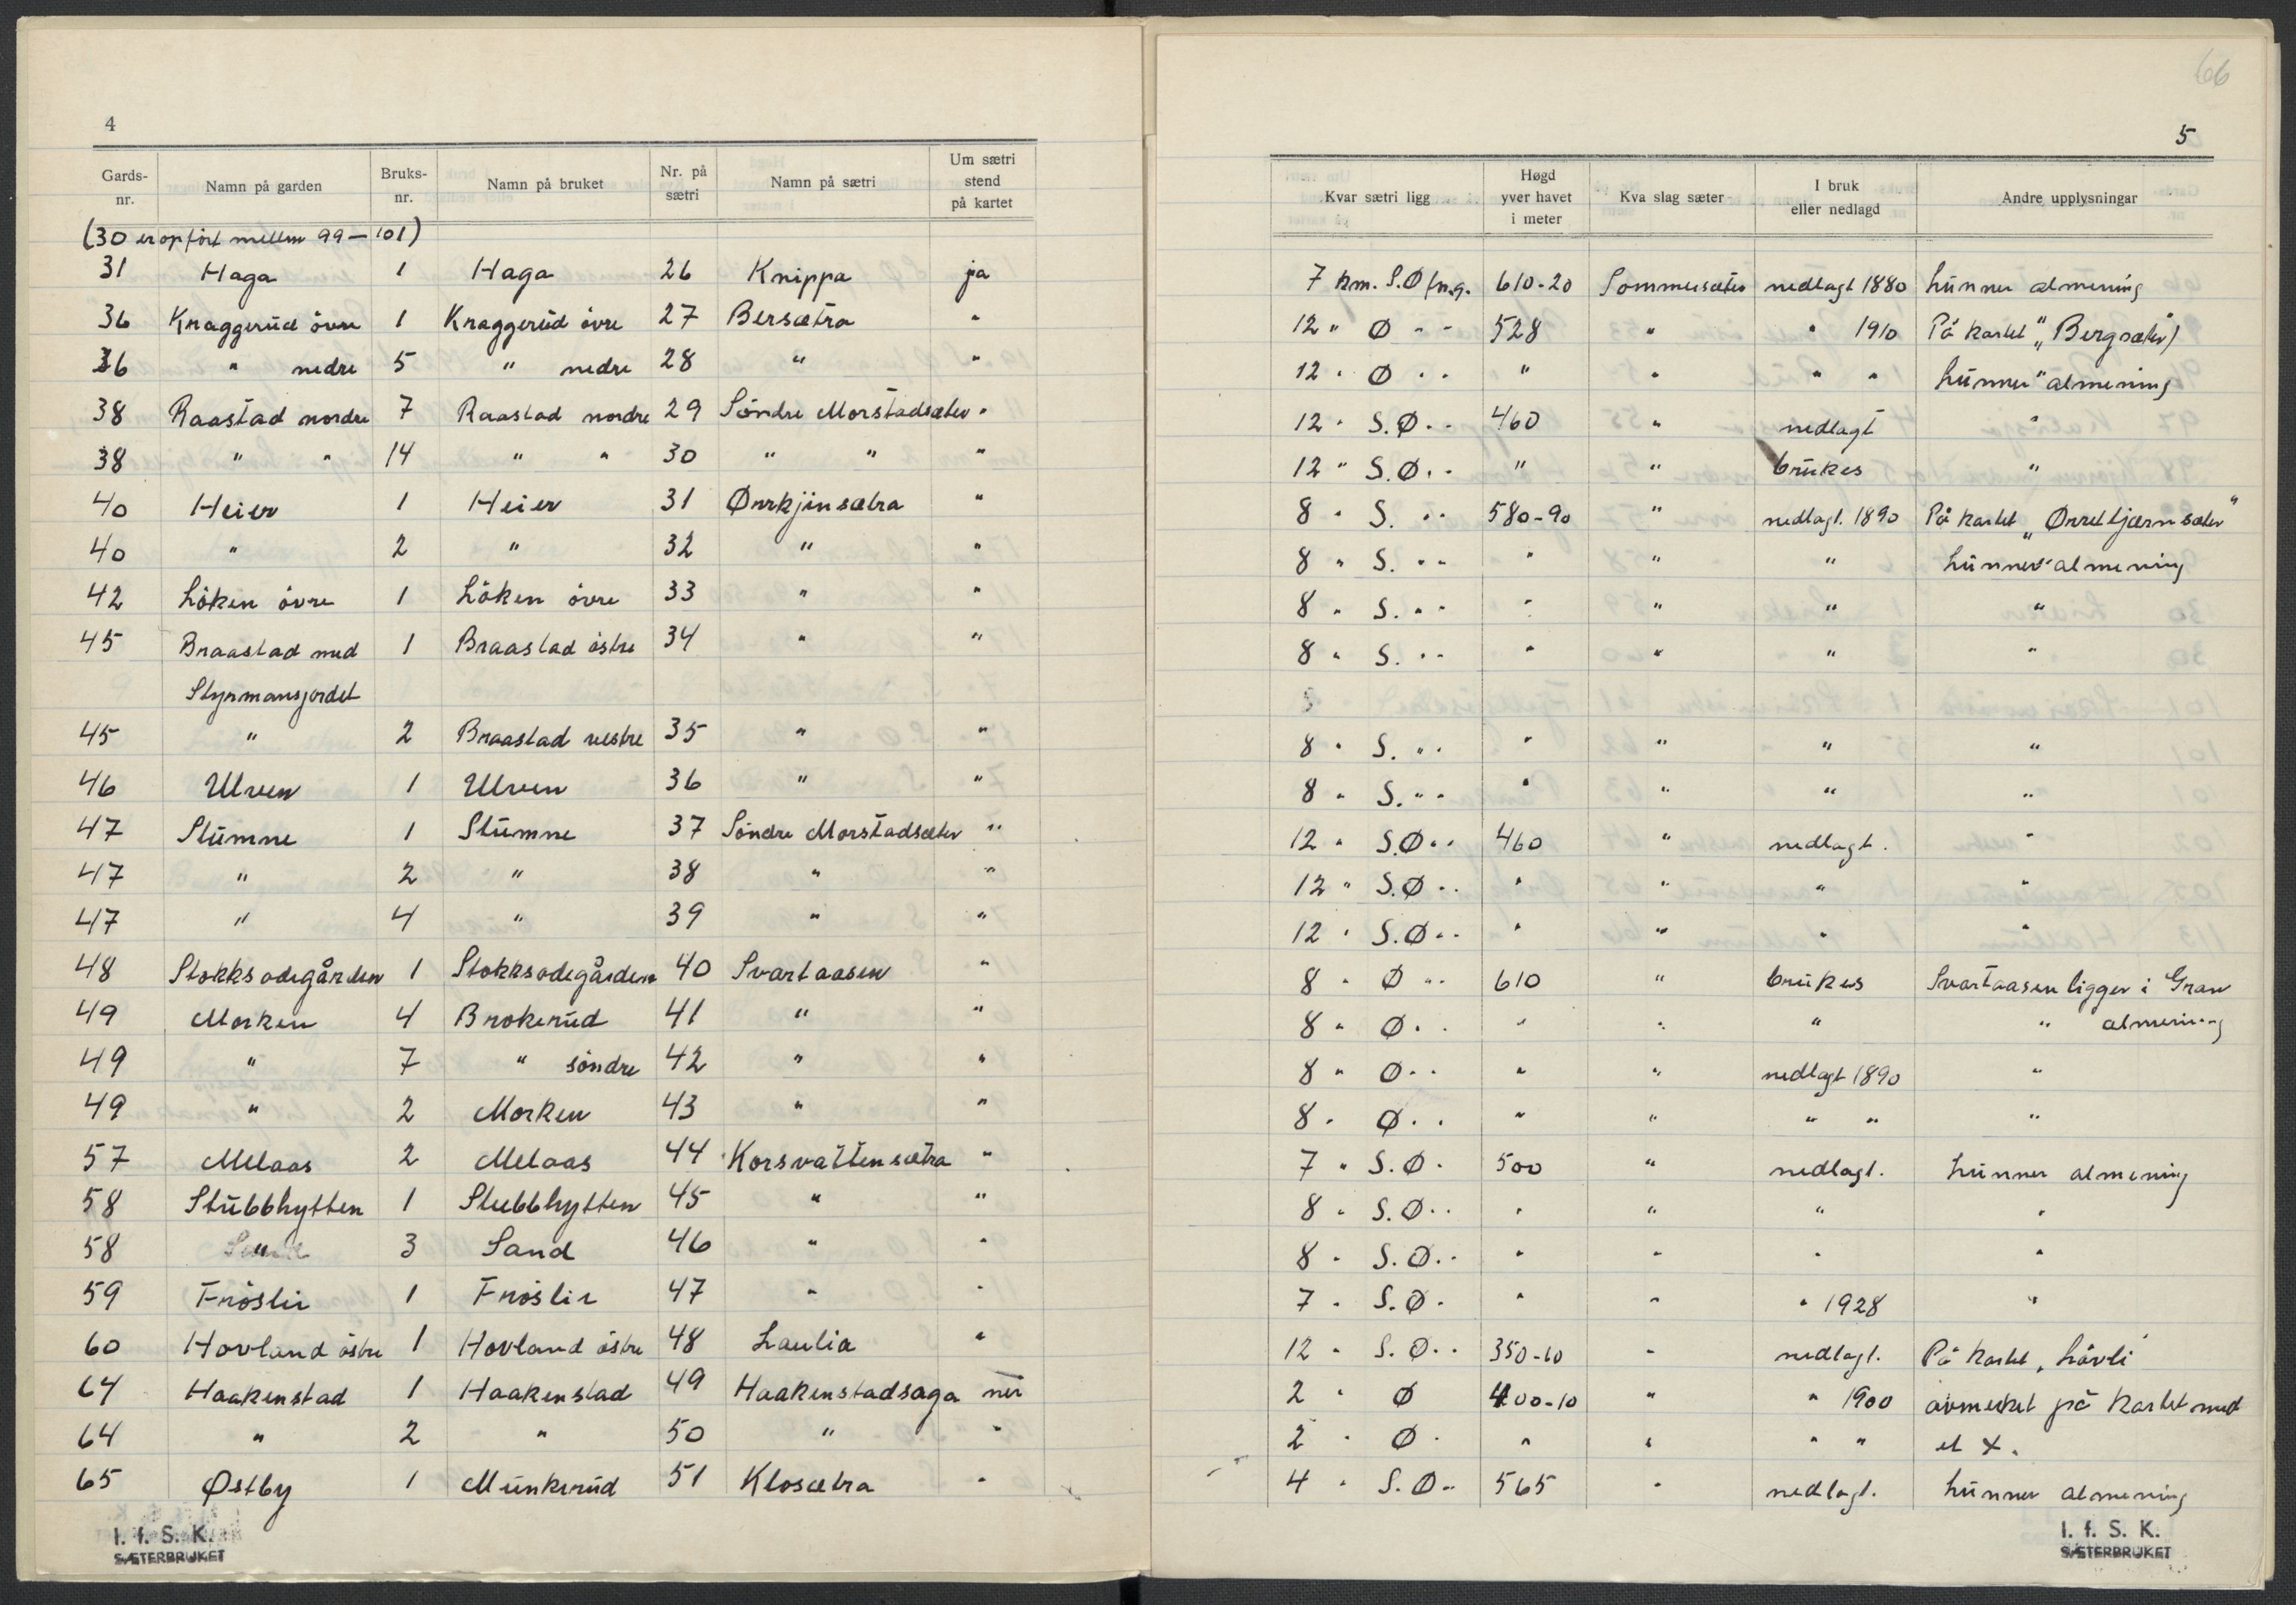 4
Gards-nr. Namn på garden Bruks-nr. Namn på bruket Nr. på sætri Namn på sætri Um sætri stend på kartet
(30 er opført mellem 99 — 101)
31 Haga 1 Haga 26 Knippa ja
36 Knaggerud övre 1 Knaggerud övre 27 Bersætra "
36 " nedre 5 " nedre 28 " "
38 Raastad nordre 7 Raastad nordre 29 Söndre Morstadsæter "
38 " " 14 " " 30 " " "
40 Heier 1 Heier 31 Ørrkjinsætra "
40 " 2 " 32 " "
42 Löken övre 1 Löken övre 33 " "
45 Braastad med 1 Braastad östre 34 " "
Styrmansjordet
45 " 2 Braastad vestre 35 " "
46 Ulven 1 Ulven 36 " "
47 Stumne 1 Stumne 37 Söndre Morstadsæter "
47 " 2 " 38 " "
47 " 4 " 39 " "
48 Stokksødegården 1 Stokksødegården 40 Svartaasen "
49 Morken 4 Brokerud 41 " "
49 " 7 " söndre 42 " "
49 " 2 Morken 43 " "
57 Melaas 2 Melaas 44 Korsvattensætra "
58 Stubbhytten 1 Stubbhytten 45 " "
58 " 3 Sand 46 " "
59 Fröslie 1 Fröslie 47 " "
60 Hovland östre 1 Hovland östre 48 Laulia "
64 Haakenstad 1 Haakenstad 49 Haakenstadsaga nei
64 " 2 " 50 " "
65 Østby 1 Munkerud 51 Klosætra "
I. f. S. K.
SÆTERBRUKET
66
5
Kvar sætri ligg Høgd yver havet i meter Kva slag sæter I bruk eller nedlagd Andre upplysningar
7 km. S.Ø f.n.g. 610-20 Sommersæter nedlagt 1880 Lunner almening
12 " Ø " " 528 " " 1910 På kartet „Bergsæter)
12 " Ø " " " " " " Lunner almening
12 " S.Ø " " 460 " nedlagt "
12 " S.Ø " " " " brukes "
8 " S. " " 580-90 " nedlagt. 1890 På kartet „Ørretkjærnsæter"
8 " S. " " " " " Lunner almening
8 " S. " " " " " "
8 " S. " " " " " "
8 " S. " " " " " "
8 " S. " " " " " "
12 " S.Ø " " 460 " nedlagt. "
12 " S.Ø " " " " " "
12 " S.Ø " " " " " "
8 " Ø " " 610 " brukes Svartaasen ligger i Gran
8 " Ø " " " " " " almening
8 " Ø " " " " nedlagt 1890 "
8 " Ø " " " " " " "
7 " S.Ø " 500 " nedlagt. Lunner almening
8 " S.Ø " " " " " "
8 " S.Ø " " " " " "
7 " S.Ø " " " " 1928 "
12 " S.Ø " " 350-60 " nedlagt. På kartet „Lövli
2 " Ø 400-10 " " 1900 avmerket på kartet med
2 " Ø " " " " " et x.
4 " S.Ø " 565 " nedlagt. Lunner almening
I. f. S. K.
SÆTERBRUKET